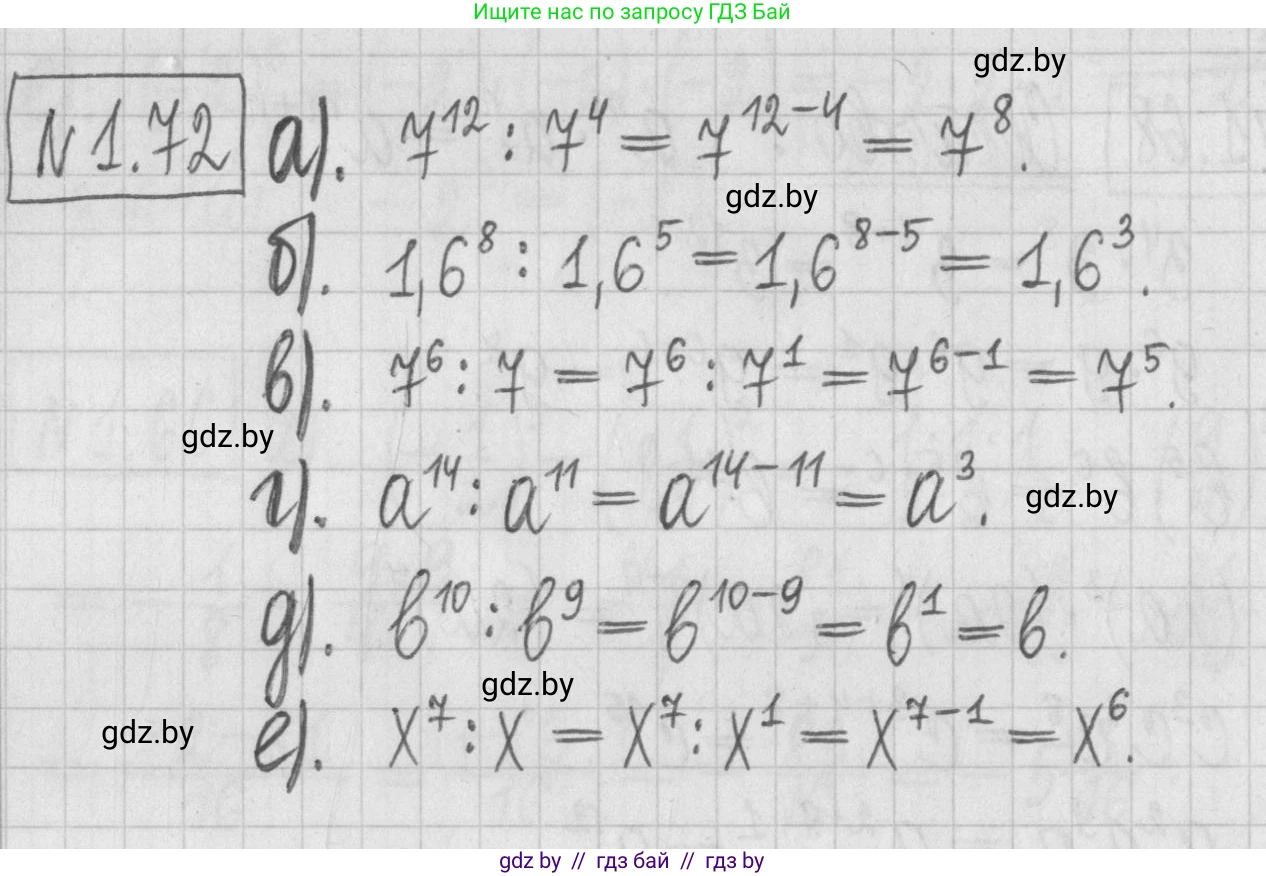 Ищите нас по запросу ГДЗ Бай
gdz.by
N 1.72 а). 7^12 : 7^4 = 7^12-4 = 7^8.
gdz.by
б). 1,6^8 : 1,6^5 = 1,6^8-5 = 1,6^3.
в). 7^6 : 7 = 7^6 : 7^1 = 7^6-1 = 7^5.
gdz.by
г). a^14 : a^11 = a^14-11 = a^3.
gdz.by
д). b^10 : b^9 = b^10-9 = b^1 = b.
gdz.by
gdz.by
е). x^7 : x = x^7 : x^1 = x^7-1 = x^6.
gdz by // гдз бай // гдз by